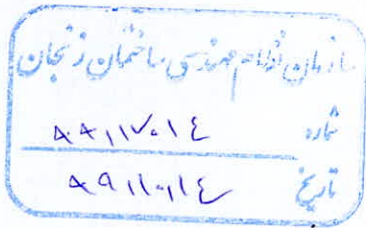 سازمان نظام مهندسی ساختمان زنجان
شماره ۸۸,۱۱۷۰۱۴
تاریخ ۸۹,۱۰,۱۴